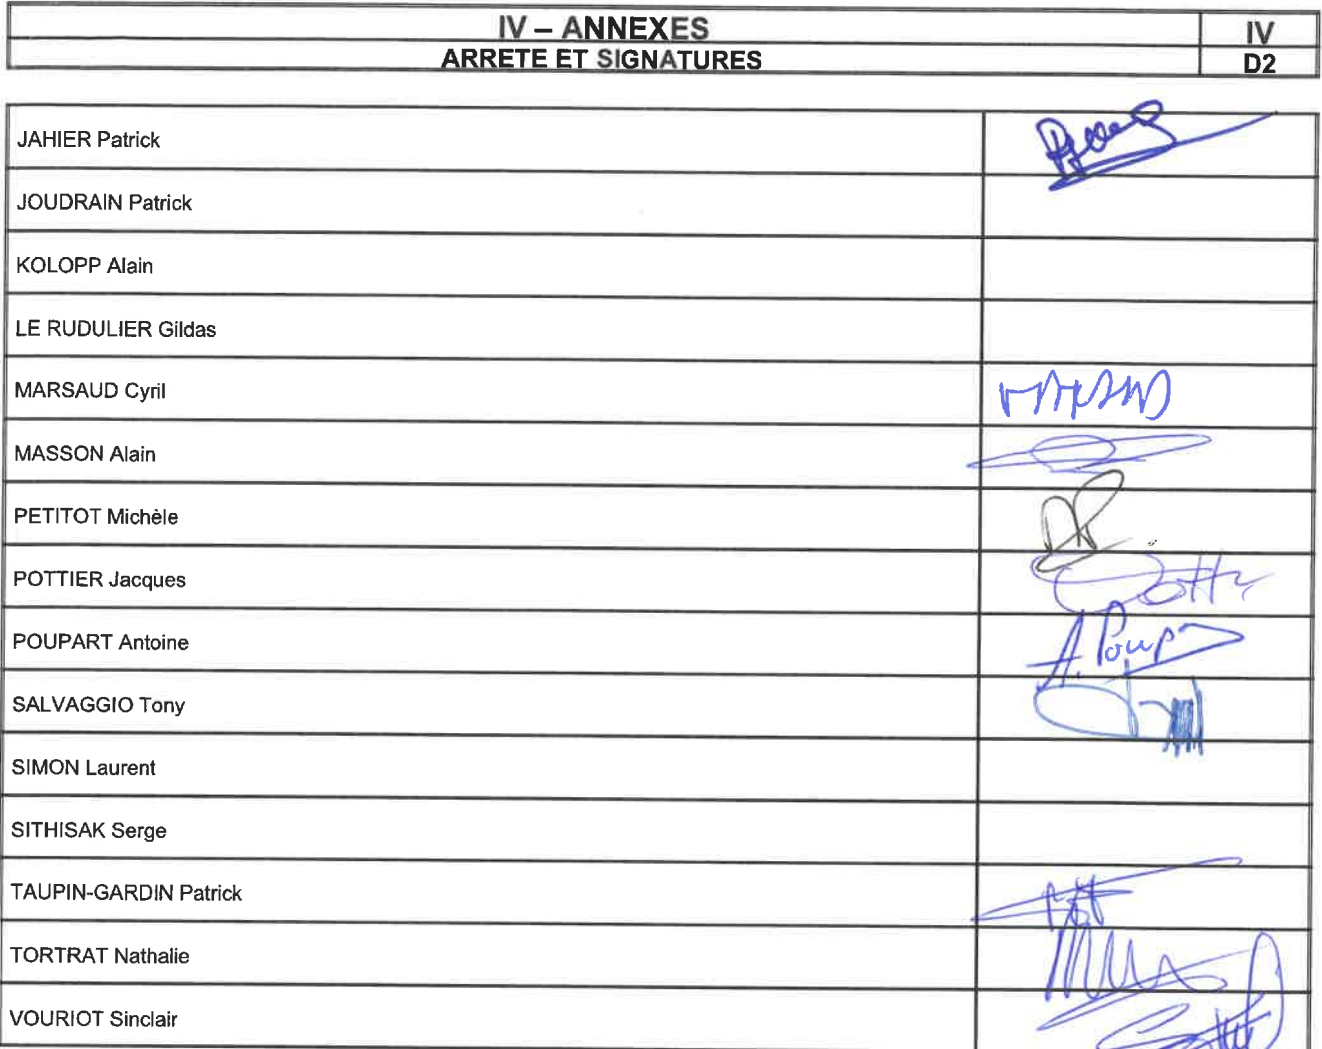 IV – ANNEXES
IV
ARRETE ET SIGNATURES
D2
JAHIER Patrick
JOUDRAIN Patrick
KOLOPP Alain
LE RUDULIER Gildas
MARSAUD Cyril
MASSON Alain
PETITOT Michèle
POTTIER Jacques
POUPART Antoine
A. Poup
SALVAGGIO Tony
SIMON Laurent
SITHISAK Serge
TAUPIN-GARDIN Patrick
TORTRAT Nathalie
VOURIOT Sinclair